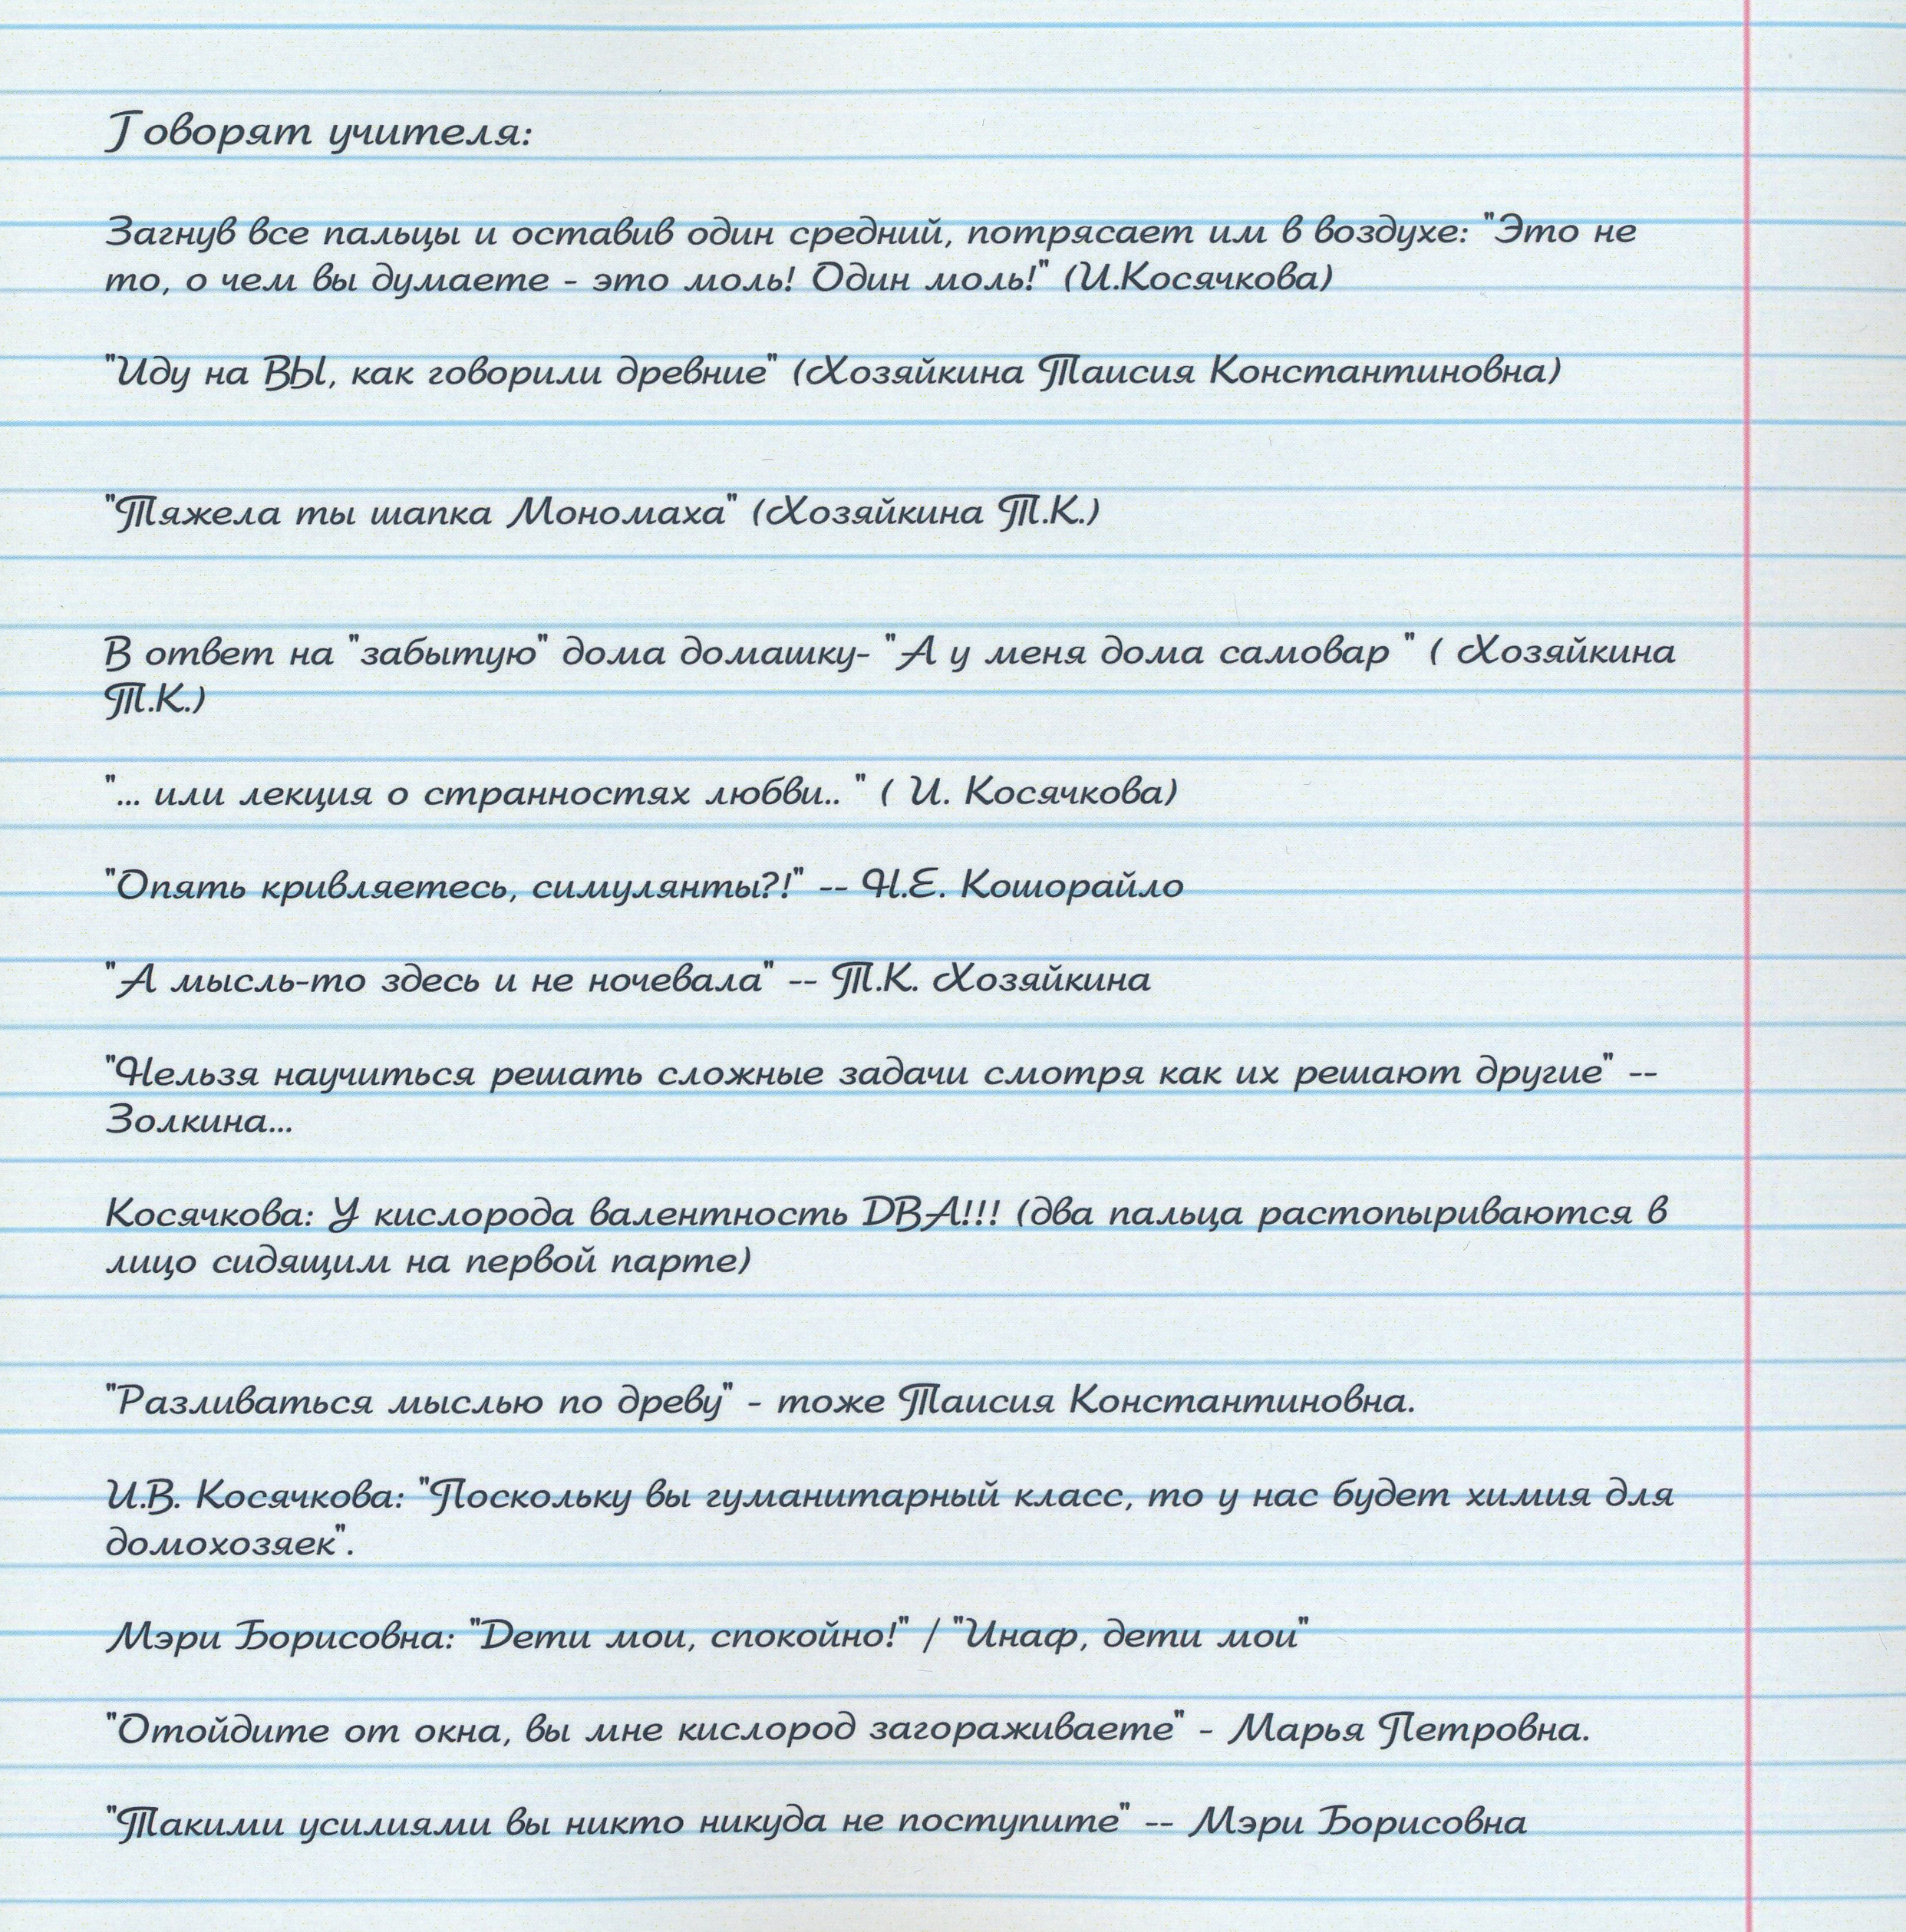 Говорят учителя:
Загнув все пальцы и оставив один средний, потрясает им в воздухе: "Это не
то, о чем вы думаете - это моль! Один моль!" (И.Косячкова)
"Иду на ВЫ, как говорили древние" (Хозяйкина Таисия Константиновна)
"Тяжела ты шапка Мономаха" (Хозяйкина Т.К.)
В ответ на "забытую" дома домашку- "А у меня дома самовар " ( Хозяйкина
Т.К.)
"... или лекция о странностях любви.. " ( И. Косячкова)
"Опять кривляетесь, симулянты?!" -- Н.Е. Кошорайло
"А мысль-то здесь и не ночевала" -- Т.К. Хозяйкина
"Нельзя научиться решать сложные задачи смотря как их решают другие" --
Золкина...
Косячкова: У кислорода валентность DВА!!! (два пальца растопыриваются в
лицо сидящим на первой парте)
"Разливаться мыслью по древу" - тоже Таисия Константиновна.
И.В. Косячкова: "Поскольку вы гуманитарный класс, то у нас будет химия для
домохозяек".
Мэри Борисовна: "Dети мои, спокойно!" / "Инаф, дети мои"
"Отойдите от окна, вы мне кислород загораживаете" - Марья Петровна.
"Такими усилиями вы никто никуда не поступите" -- Мэри Борисовна